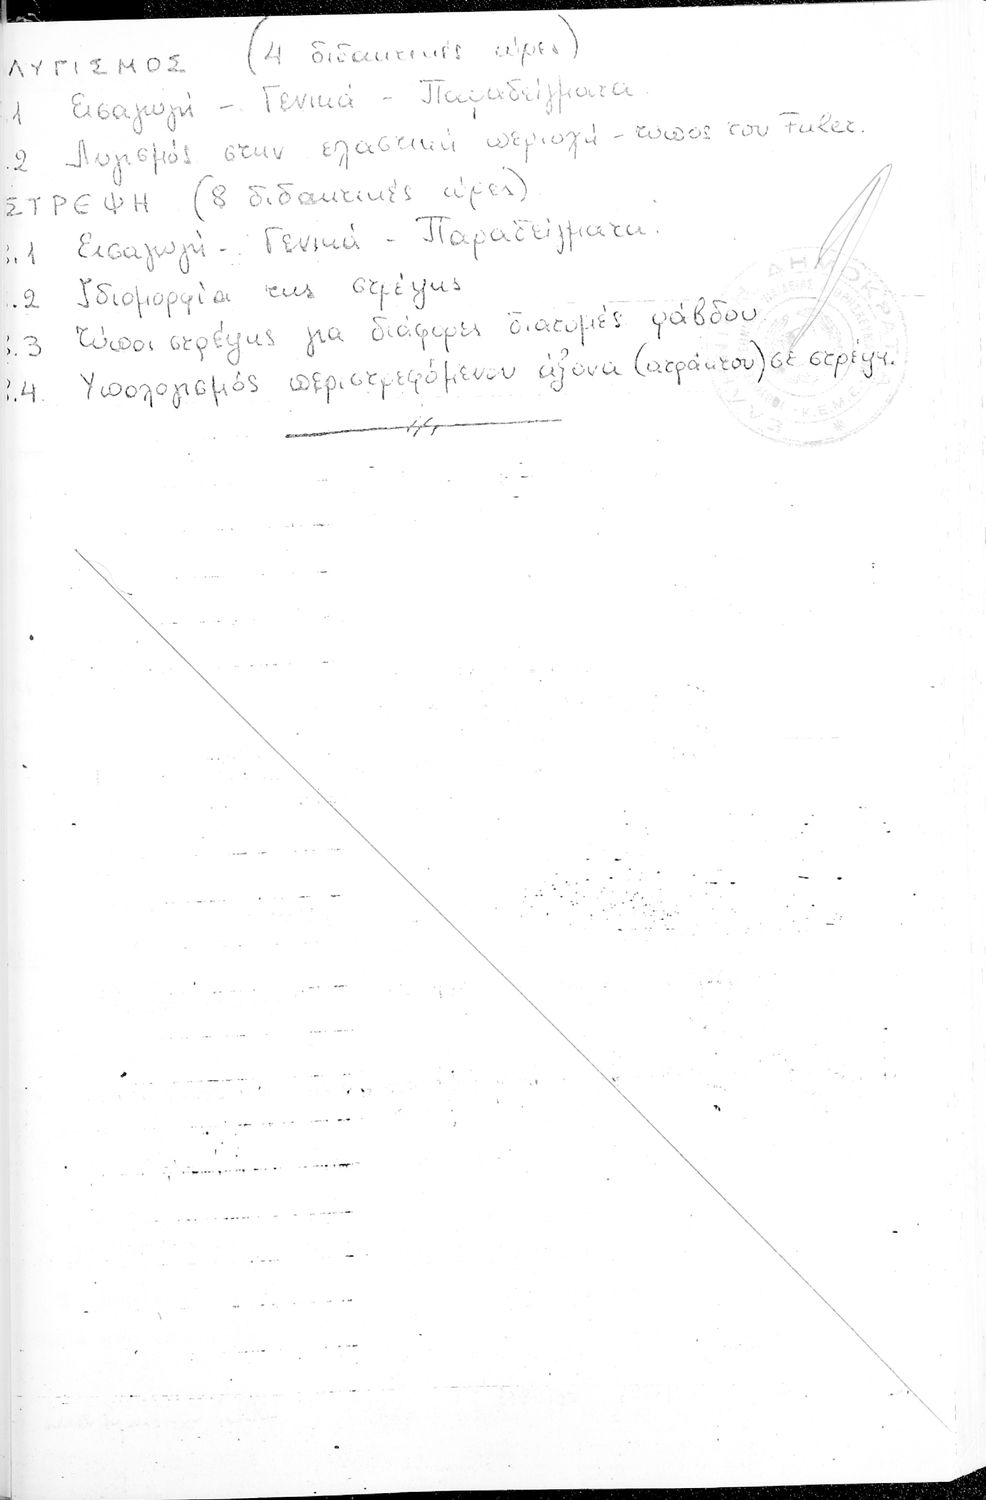 ΛΥΓΙΣΜΟΣ (4 διδακτικές ώρες)
.1 Εισαγωγή - Γενικά - Παραδείγματα.
.2 Λυγισμός στην ελαστική περιοχή - τύπος του Euler.
ΣΤΡΕΨΗ (8 διδακτικές ώρες)
.1 Εισαγωγή - Γενικά - Παραδείγματα.
.2 Ιδιομορφία της στρέψης
.3 Τύποι στρέψης για διάφορες διατομές ράβδου
.4 Υπολογισμός περιστρεφόμενου άξονα (ατράκτου) σε στρέψη.
ΔΗΜΟΚΡΑΤ
Κ.Ε.Μ.Ε.